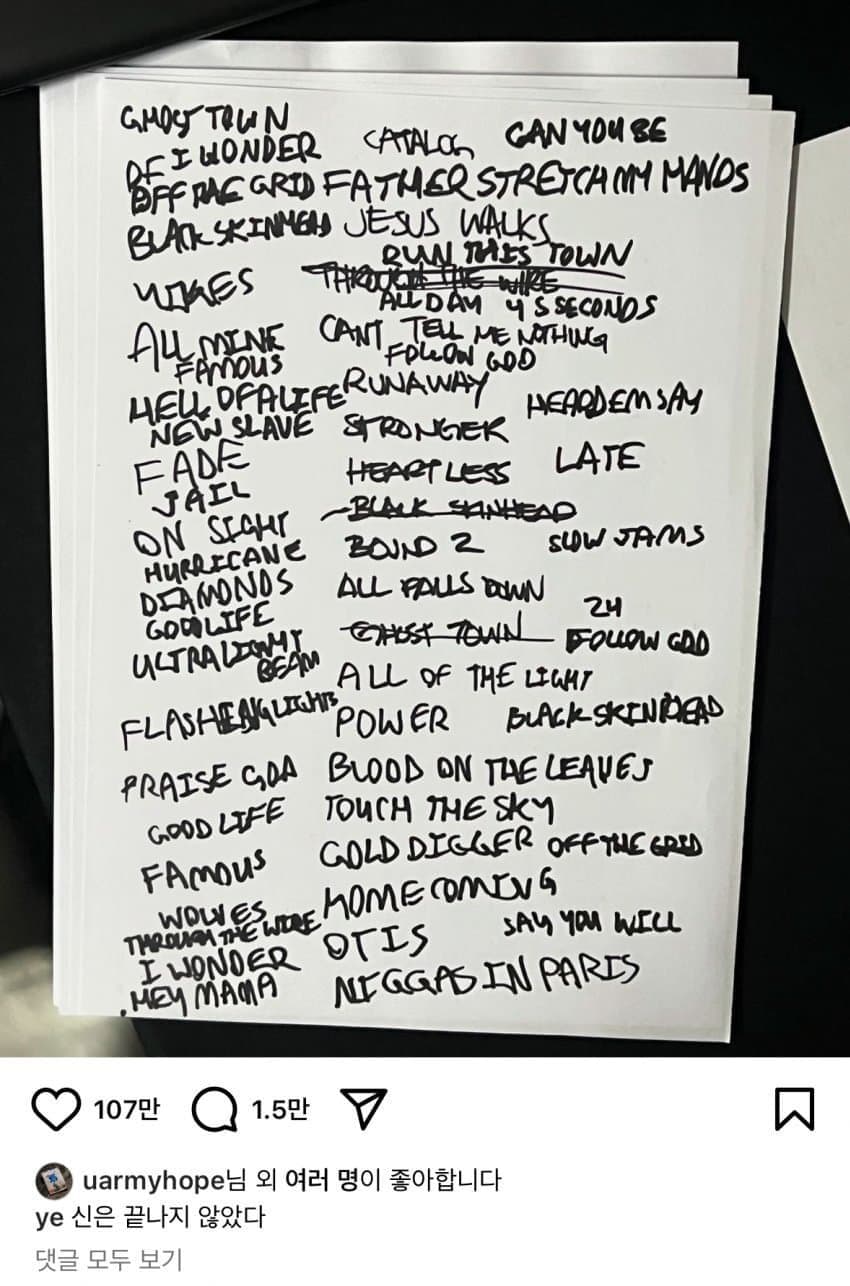 GHOST TOWN
DF I WONDER CATALOG CAN YOU BE
OFF THE GRID FATHER STRETCH MY HANDS
BLACK SKINHEAD JESUS WALKS
RUN THIS TOWN
YIKES THROUGH THE WIRE
ALL DAY 4 5 SECONDS
ALL MINE CANT TELL ME NOTHING
FAMOUS FOLLOW GOD
HELL OF A LIFE RUNAWAY HEARD EM SAY
NEW SLAVE STRONGER
FADE HEARTLESS LATE
JAIL BLACK SKINHEAD
ON SIGHT BOUND 2 SLOW JAMS
HURRICANE
DIAMONDS ALL FALLS DOWN
GOOD LIFE GHOST TOWN 24
ULTRALIGHT BEAM FOLLOW GOD
ALL OF THE LIGHT
FLASHING LIGHTS POWER BLACK SKINHEAD
PRAISE GOD BLOOD ON THE LEAVES
GOOD LIFE TOUCH THE SKY
FAMOUS GOLD DIGGER OFF THE GRID
WOLVES HOMECOMING
THROUGH THE WIRE SAY YOU WILL
I WONDER OTIS
HEY MAMA NIGGAS IN PARIS
107만 1.5만
uarmyhope님 외 여러 명이 좋아합니다
ye 신은 끝나지 않았다
댓글 모두 보기